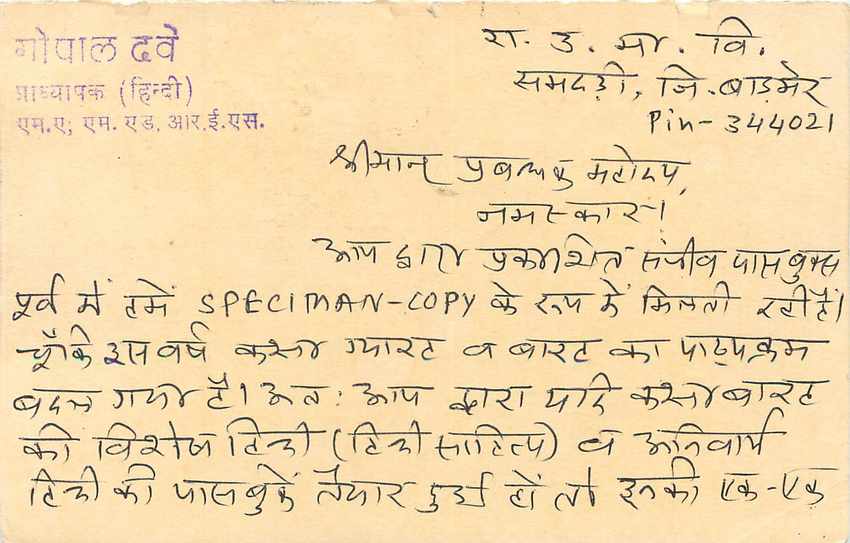 गोपाल दवे
प्राध्यापक (हिन्दी)
एम.ए; एम. एड. आर.ई.एस.
रा. उ. मा. वि.
समदड़ी, जि. बाड़मेर
Pin- 344021
श्रीमान् प्रबन्धक महोदय,
नमस्कार।
आप द्वारा प्रकाशित संजीव पास बुक्स
पूर्व में हमें SPECIMAN-COPY के रूप में मिलती रही हैं।
चूँकि इस वर्ष कक्षा ग्यारह व बारह का पाठ्यक्रम
बदल गया है। अत: आप द्वारा यदि कक्षा बारह
की विशेष हिन्दी (हिन्दी साहित्य) व अनिवार्य
हिन्दी की पास बुकें तैयार हुई हों तो इनकी एक-एक